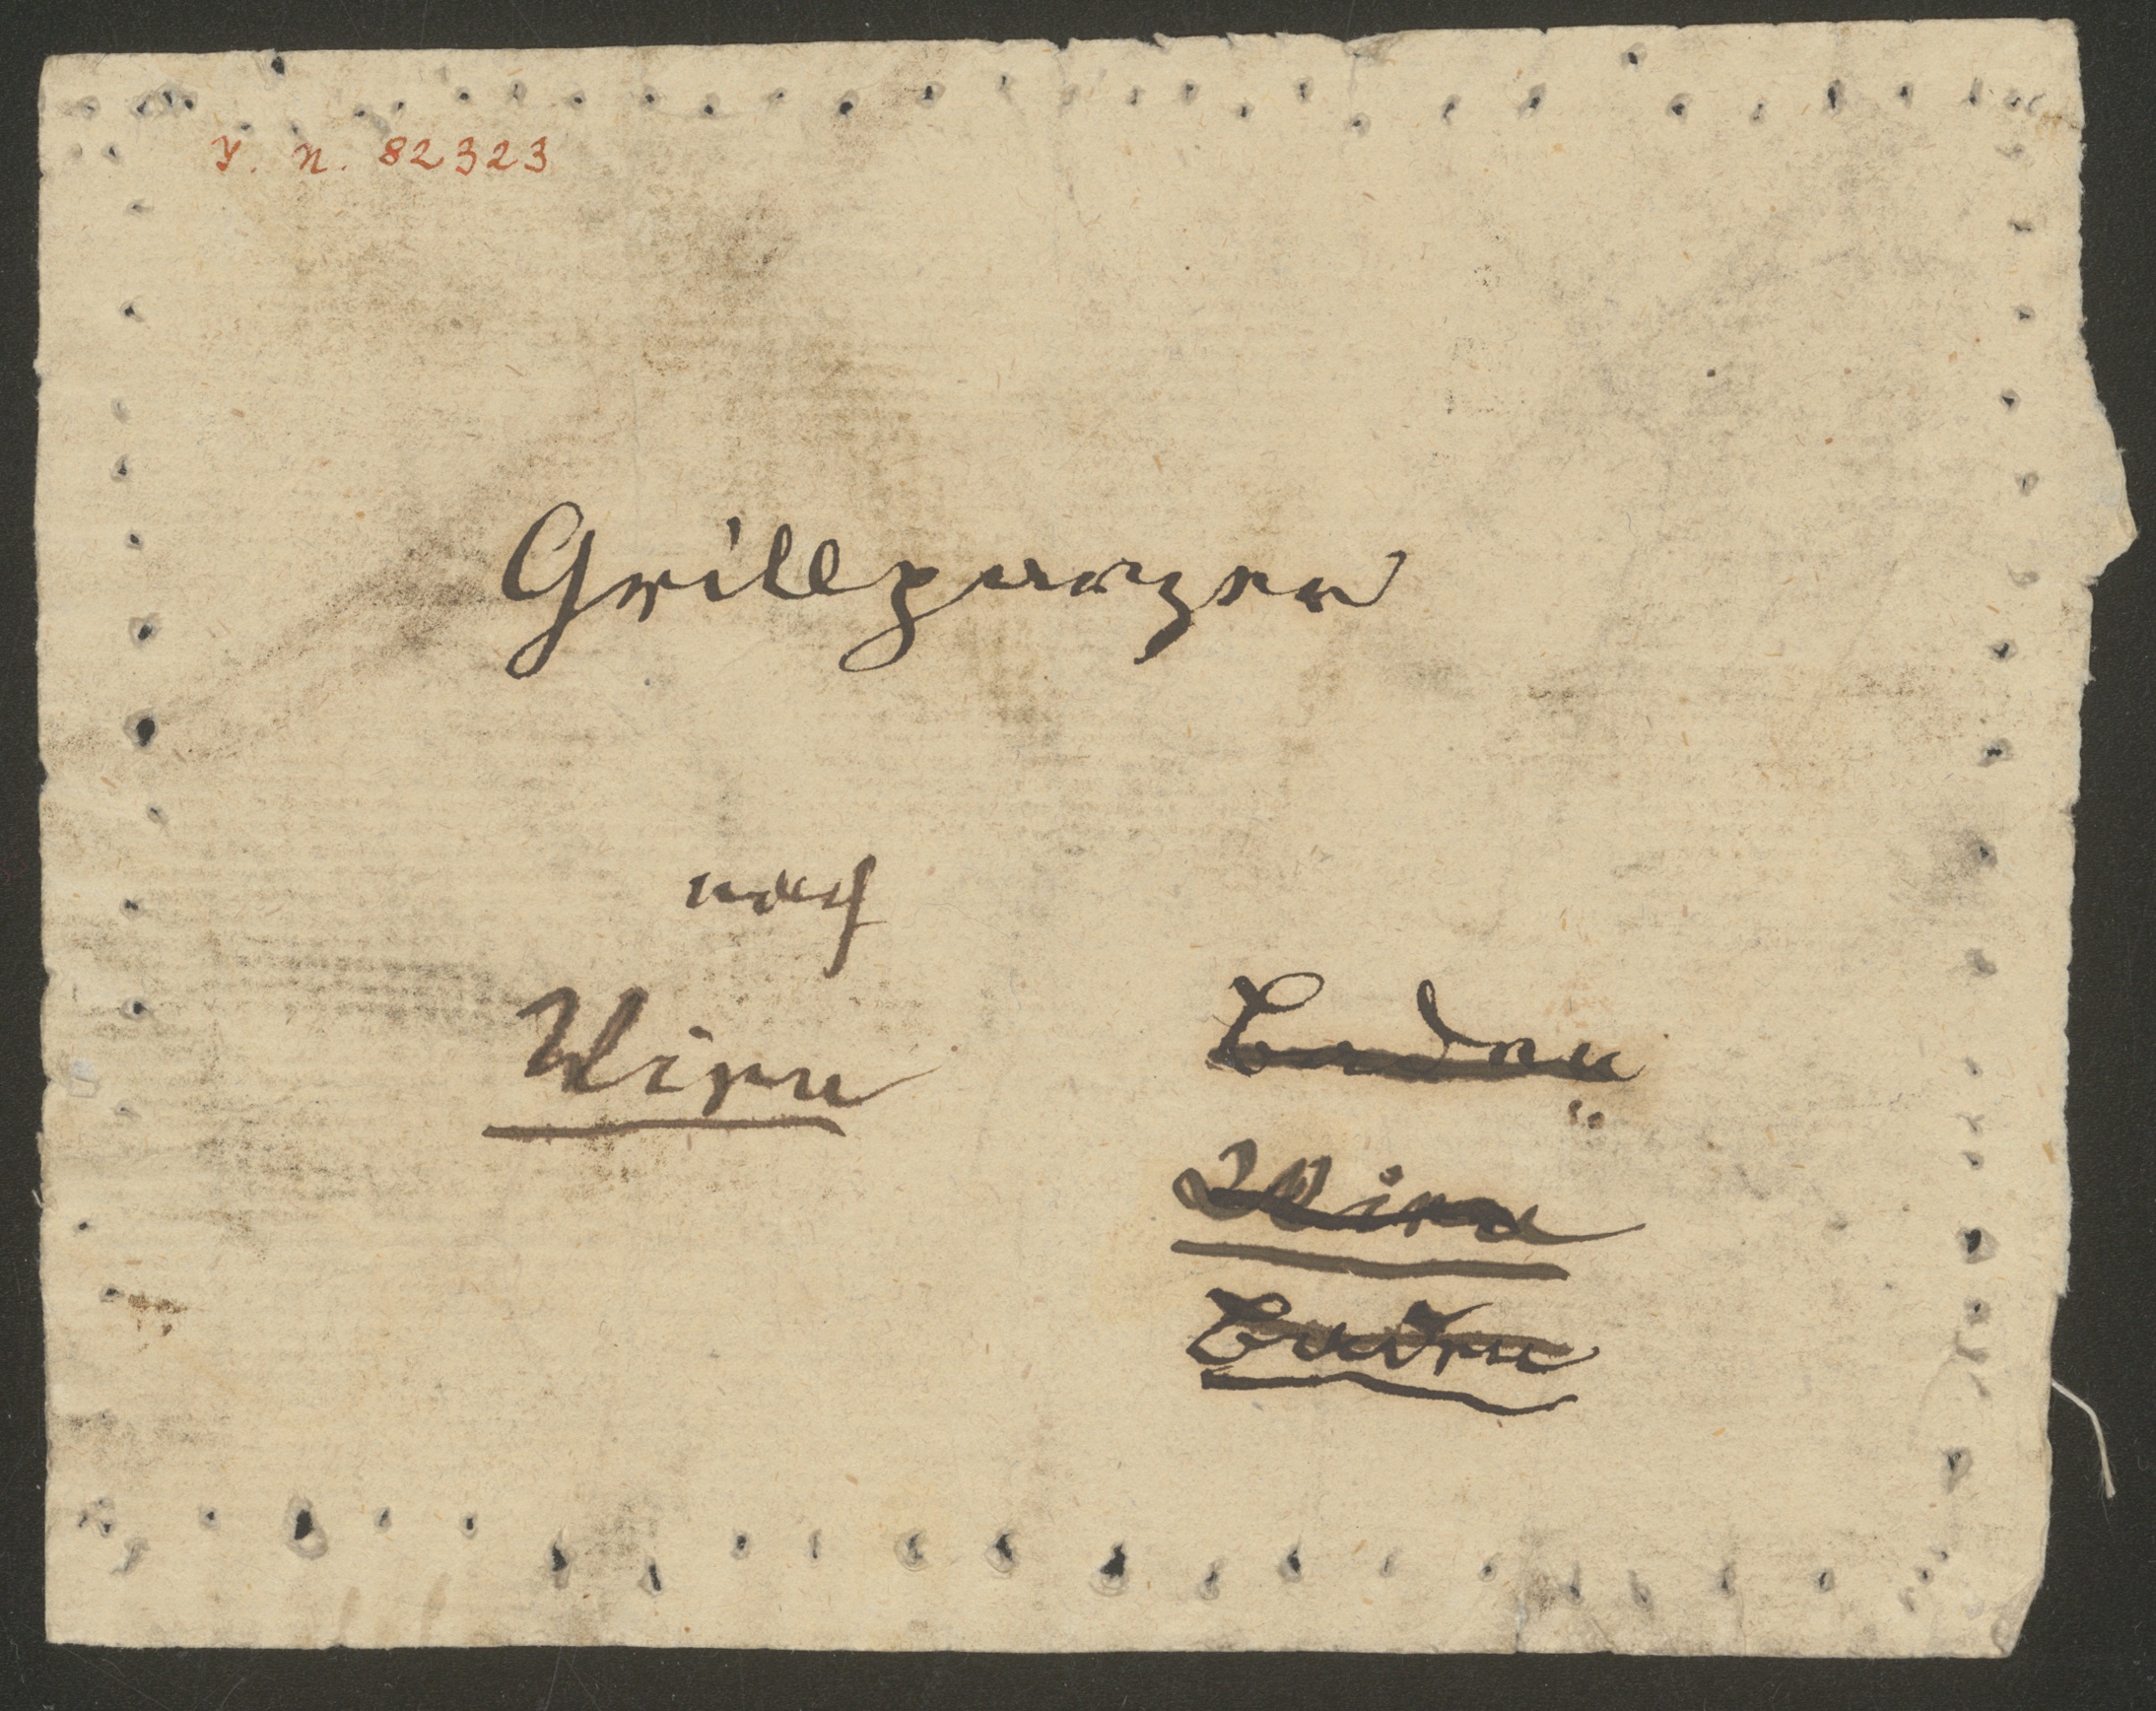 I. N. 82323
Grillparzer
nach
Wien
Baden
Wien
Baden